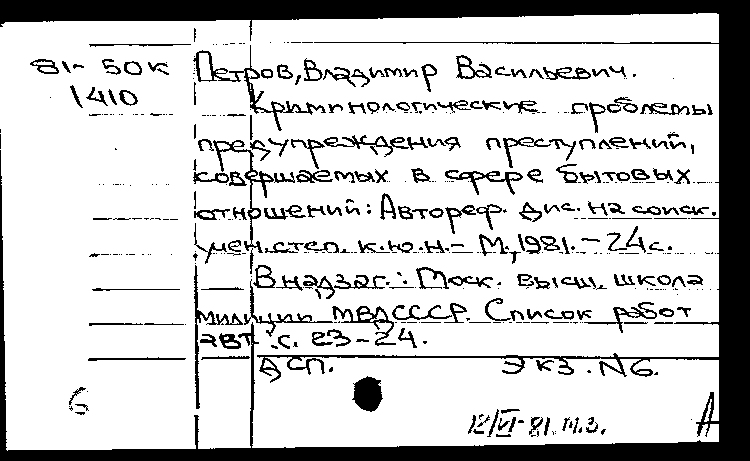 81-50к
1410
Петров, Владимир Васильевич.
Криминологические проблемы
предупреждения преступлений,
совершаемых в сфере бытовых
отношений: Автореф. дис. на соиск.
учен. степ. к.ю.н.- М., 1981.- 24 с.
В надзаг.: Моск. высш. школа
милиции МВД СССР. Список работ
авт.: с. 23-24.
ДСП. Экз. N6.
6
12/VI-81. М.З. А